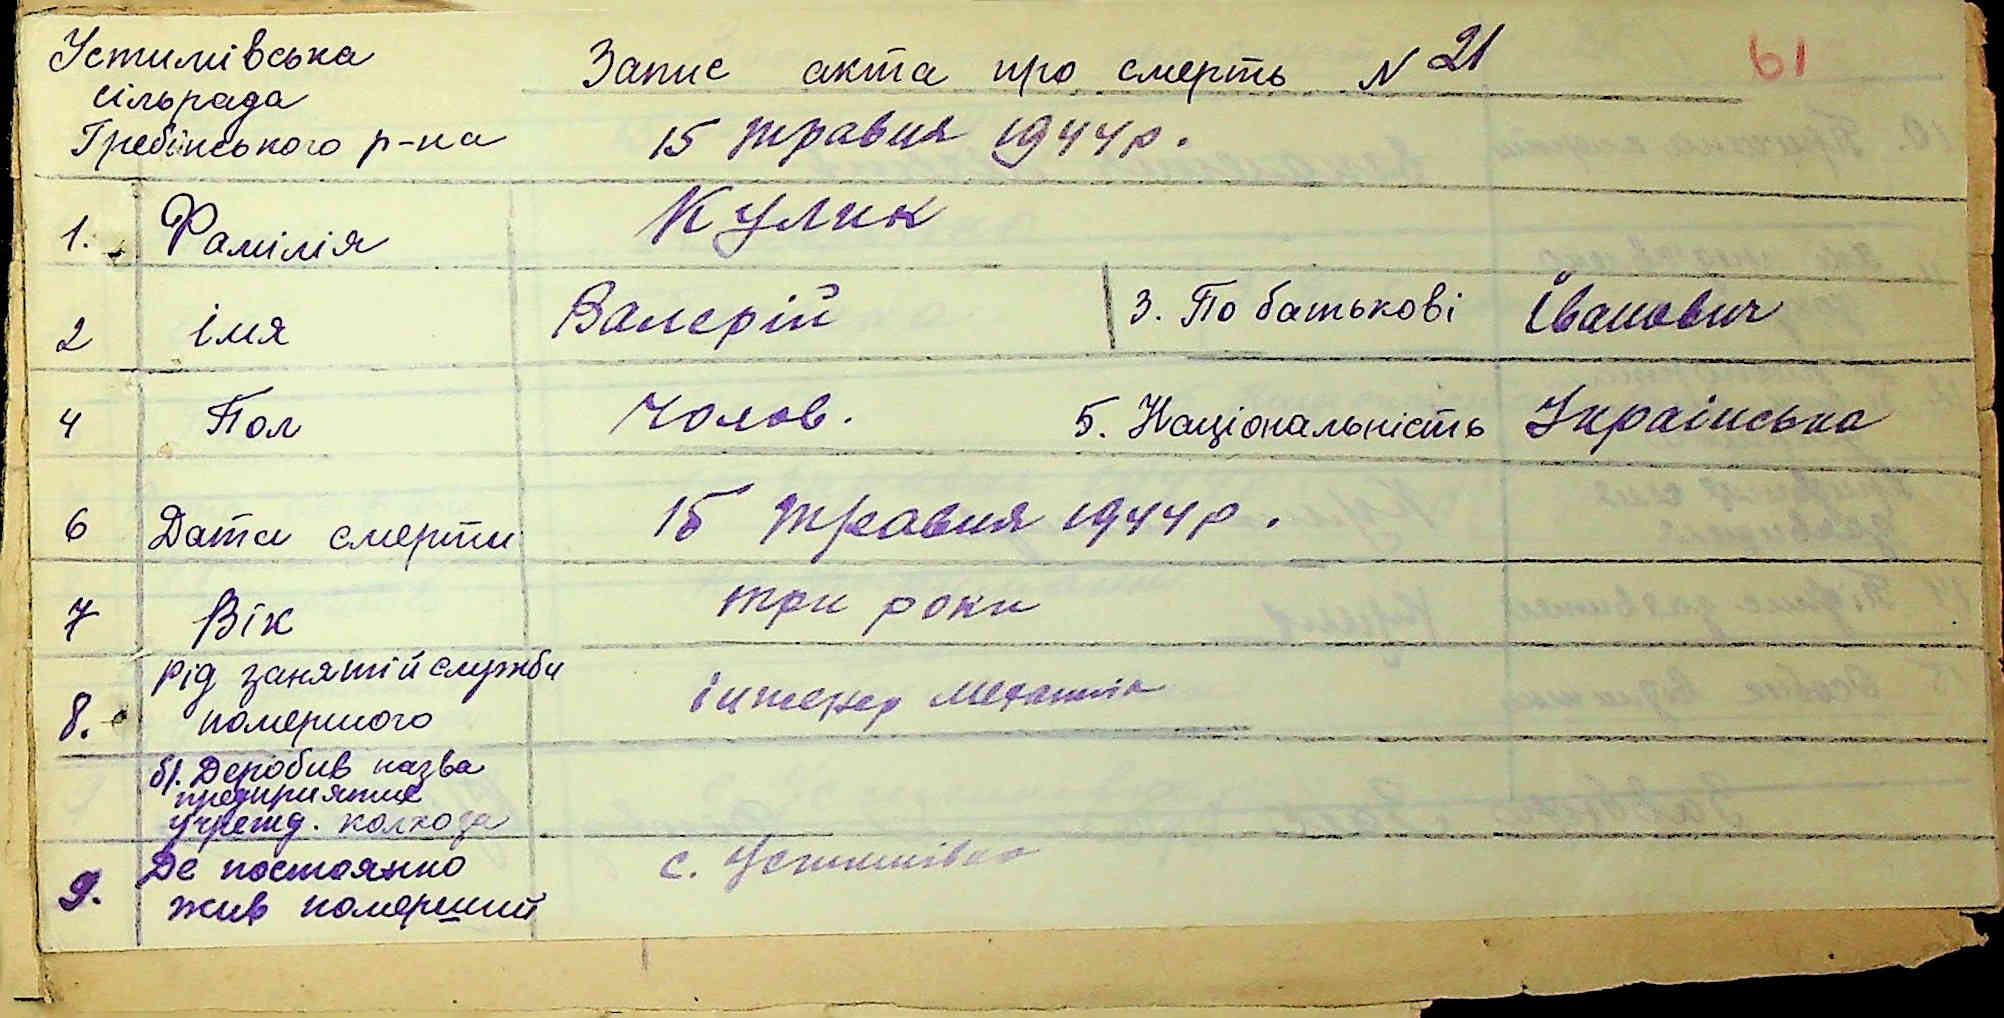 Устимівська
сільрада
Гребінського р-на
Запис акта про смерть N 21
61
15 травня 1944 р.
1. Фамілія Кулик
2 імя Валерій 3. По батькові Іванович
4 Пол Чолов. 5. Національність Українська
6 Дата смерти 15 травня 1944 р.
7 Вік три роки
8. рід занятій служби
помершого інженер механік
б). Де робив назва
предприятие
учрежд. колхоза
9. Де постоянно с. Устимівка
жив померший